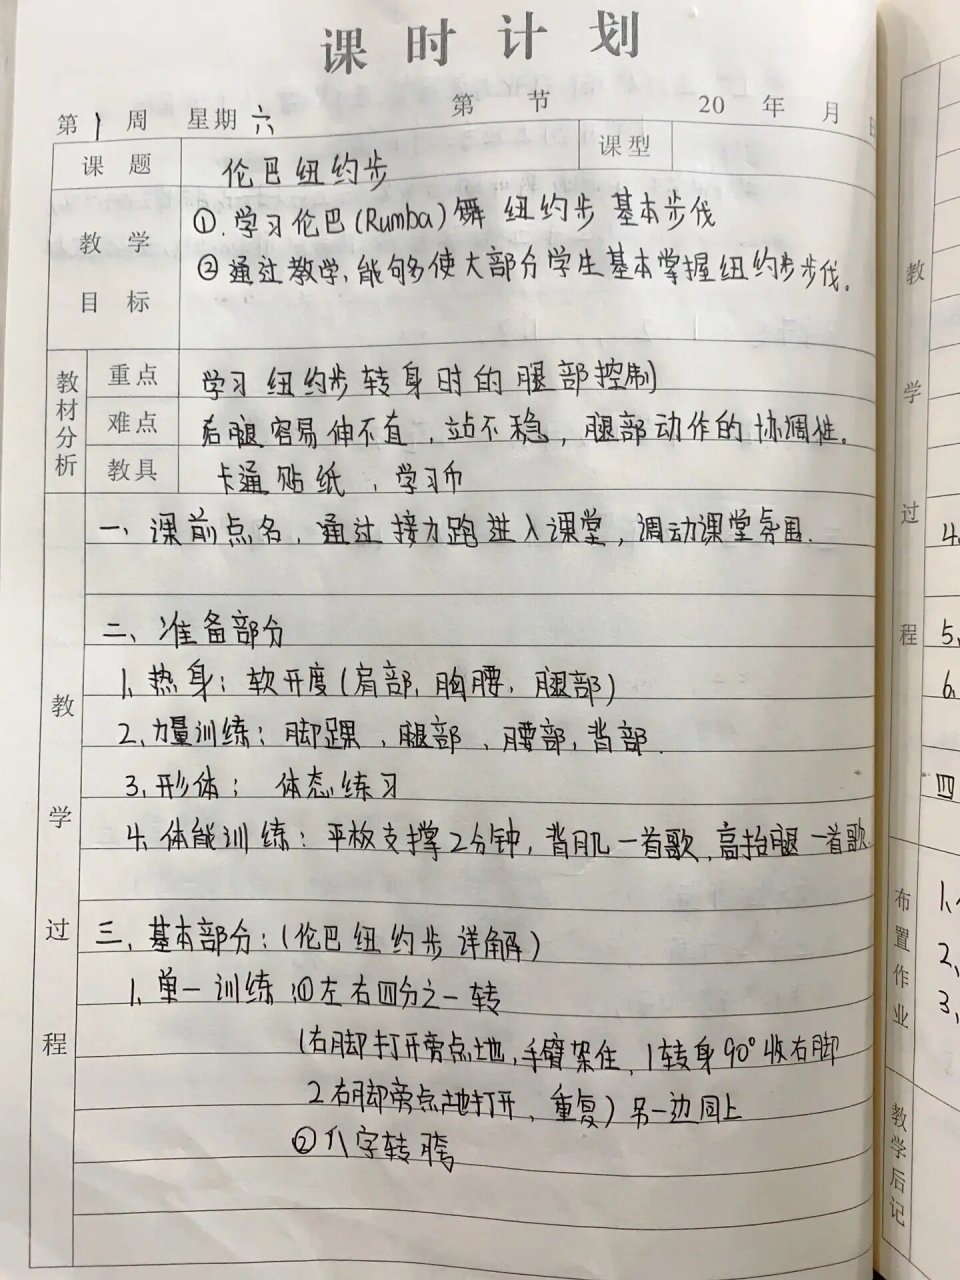 课时计划
第1周 星期六 第 节 20 年 月
课题 伦巴纽约步 课型
教学目标 ①.学习伦巴(Rumba)舞 纽约步 基本步伐
②通过教学,能够使大部分学生基本掌握纽约步步伐。
教材分析
重点 学习纽约步转身时的腿部控制
难点 后腿容易伸不直,站不稳,腿部动作的协调性。
教具 卡通贴纸、学习币
教学过程
一、课前点名,通过接力跑进入课堂,调动课堂氛围.
二、准备部分
1、热身:软开度(肩部,胸腰,腿部)
2、力量训练:脚踝、腿部、腰部,背部.
3、形体: 体态练习
4、体能训练:平板支撑2分钟,背肌一首歌,高抬腿一首歌.
三、基本部分:(伦巴纽约步详解)
1、单一训练:①左右四分之一转
(右脚打开旁点地,手臂架住,1转身90°收右脚
2右脚旁点地打开,重复)另一边同上
②八字转胯
教学过程
4、
5、
6、
四
布置作业
1、
2、
3、
教学后记